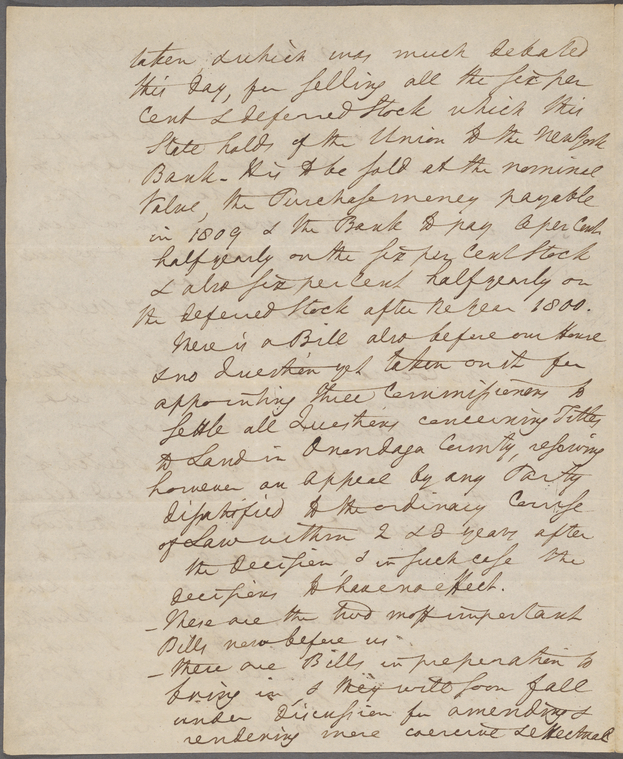 taken & which was much debated
this Day, for selling all the six per
Cent & deferred Stock which this
State holds of the Union to the New York
Bank - It is to be sold at the nominal
Value, the Purchase money payable
in 1809 & the Bank to pay 6 per Cent
half yearly on the six per Cent Stock
& also six per Cent half yearly on
the deferred Stock after the year 1800.
There is a Bill also before our House
& no Question yet taken on it for
appointing three Commissioners to
settle all Questions concerning Titles
to Land in Onondaga County, reserving
however an appeal by any Party
disatisfied to the ordinary Course
of Law within 2 & 3 years after
the decision, & in such case the
decisions to have no effect.
- These are the two most important
Bills now before us -
- there are Bills in preparation to
bring in & they will soon fall
under discussion for amending &
rendering more coercive & effectual